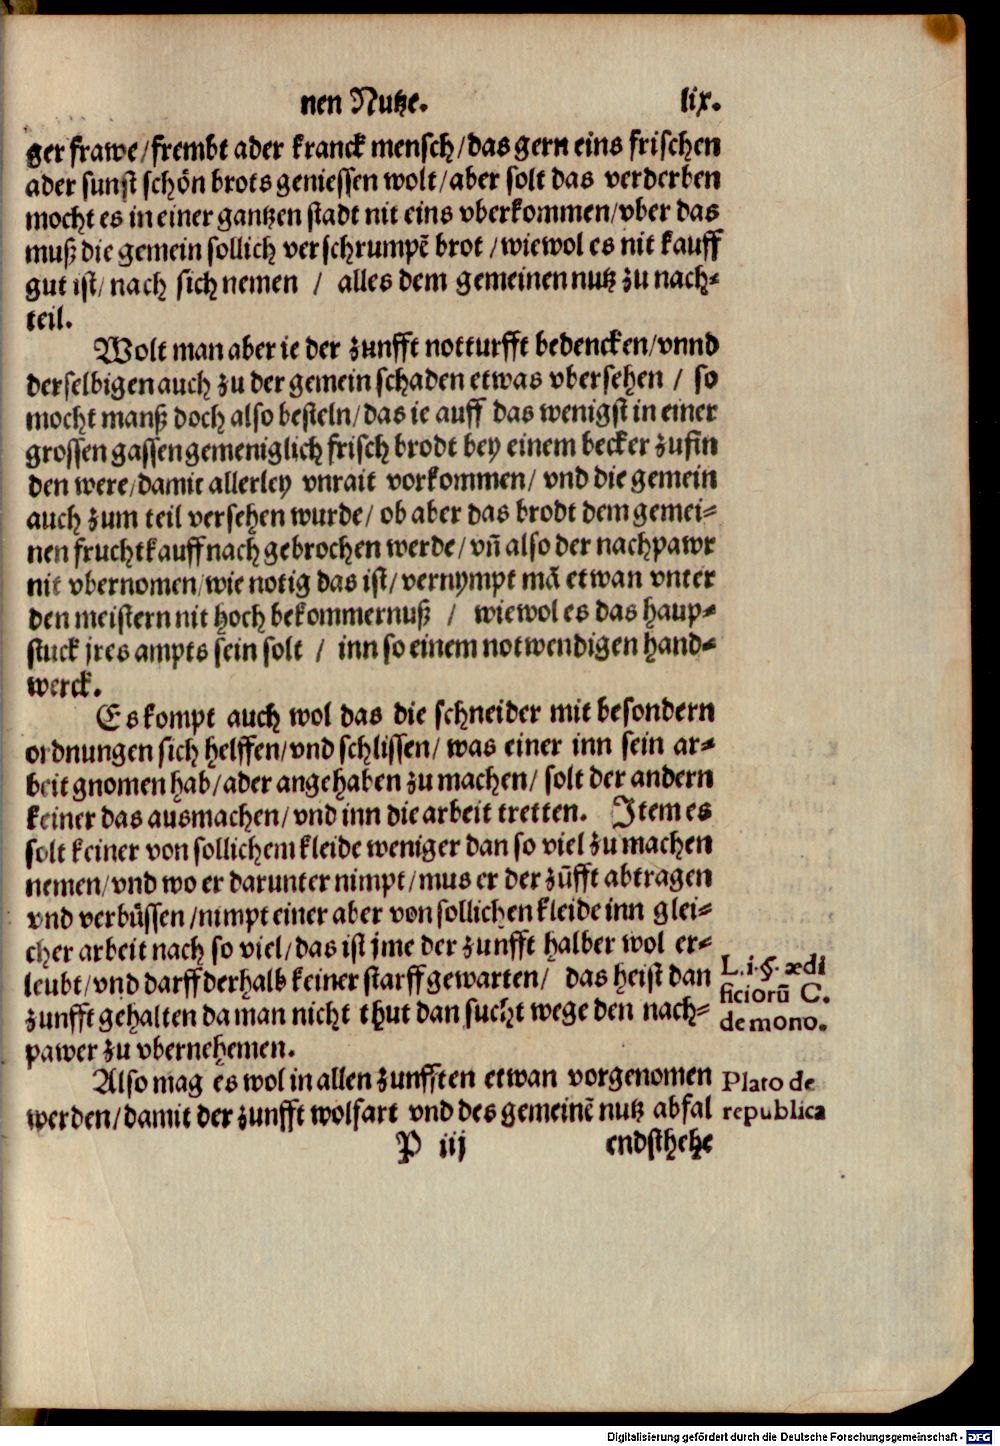 nen Nutze. lix.
ger frawe/frembt ader kranck mensch/das gern eins frischen
ader sunst schön brots geniessen wolt/aber solt das verderben
mocht es in einer gantzen stadt nit eins vberkommen/vber das
muß die gemein sollich verschrumpē brot/wiewol es nit kauff
gut ist/nach sich nemen / alles dem gemeinen nutz zu nach-
teil.
Wolt man aber ie der zunfft notturfft bedencken/vnnd
derselbigen auch zu der gemein schaden etwas vbersehen / so
mocht manß doch also besteln/das ie auff das wenigst in einer
grossen gassen gemeniglich frisch brodt bey einem becker zufin
den were/damit allerley vnrait vorkommen/ vnd die gemein
auch zum teil versehen wurde/ ob aber das brodt dem gemei-
nen fruchtkauff nach gebrochen werde/ vñ also der nachpawr
nit vbernomen/wie notig das ist/ vernympt mā etwan vnter
den meistern nit hoch bekommernuß / wiewol es das haup-
stuck jres ampts sein solt / inn so einem notwendigen hand-
werck.
Es kompt auch wol das die schneider mit besondern
ordnungen sich helffen/vnd schlissen/ was einer inn sein ar-
beit gnomen hab/ader angehaben zu machen/ solt der andern
keiner das ausmachen/ vnd inn die arbeit tretten. Item es
solt keiner von sollichem kleide weniger dan so viel zu machen
nemen/vnd wo er darunter nimpt/mus er der zūfft abtragen
vnd verbüssen/nimpt einer aber von sollichen kleide inn glei-
cher arbeit nach so viel/das ist jme der zunfft halber wol er-
leubt/vnd darff derhalb keiner starff gewarten/ das heist dan
zunfft gehalten da man nicht thut dan sucht wege den nach-
pawer zu vbernehemen.
L.i.§. ædi
ficiorū C.
de mono.
Also mag es wol in allen zunfften etwan vorgenomen
werden/damit der zunfft wolfart vnd des gemeinē nutz abfal
Plato de
republica
P iij endsthehe
Digitalisierung gefördert durch die Deutsche Forschungsgemeinschaft - DFG